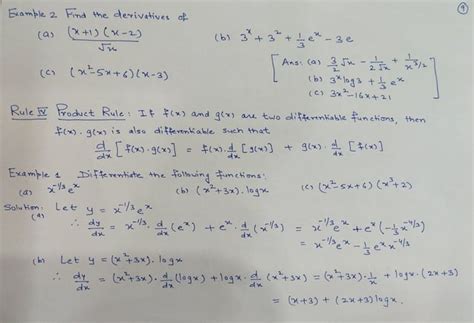 9
Example 2 Find the derivatives of
(a) (x+1)(x-2) / √x (b) 3^x + 3^2 + 1/3 e^x - 3e
(c) (x²-5x+6)(x-3)
[Ans: (a) 3/2 √x - 1/(2√x) + 1/x^(3/2)
(b) 3^x log3 + 1/3 e^x
(c) 3x²-16x+21]
Rule IV Product Rule: If f(x) and g(x) are two differentiable functions, then
f(x).g(x) is also differentiable such that
d/dx [f(x).g(x)] = f(x).d/dx [g(x)] + g(x).d/dx [f(x)]
Example 1 Differentiate the following functions:
(a) x^(-1/3) e^x (b) (x²+3x).logx (c) (x²-5x+6)(x³+2)
Solution: Let y = x^(-1/3) e^x
(a) ∴ dy/dx = x^(-1/3).d/dx (e^x) + e^x.d/dx (x^(-1/3)) = x^(-1/3) e^x + e^x(-1/3 x^(-4/3))
= x^(-1/3) e^x - 1/3 e^x x^(-4/3)
(b) Let y = (x²+3x).logx
∴ dy/dx = (x²+3x).d/dx (logx) + logx.d/dx (x²+3x) = (x²+3x).1/x + logx.(2x+3)
= (x+3) + (2x+3) logx.